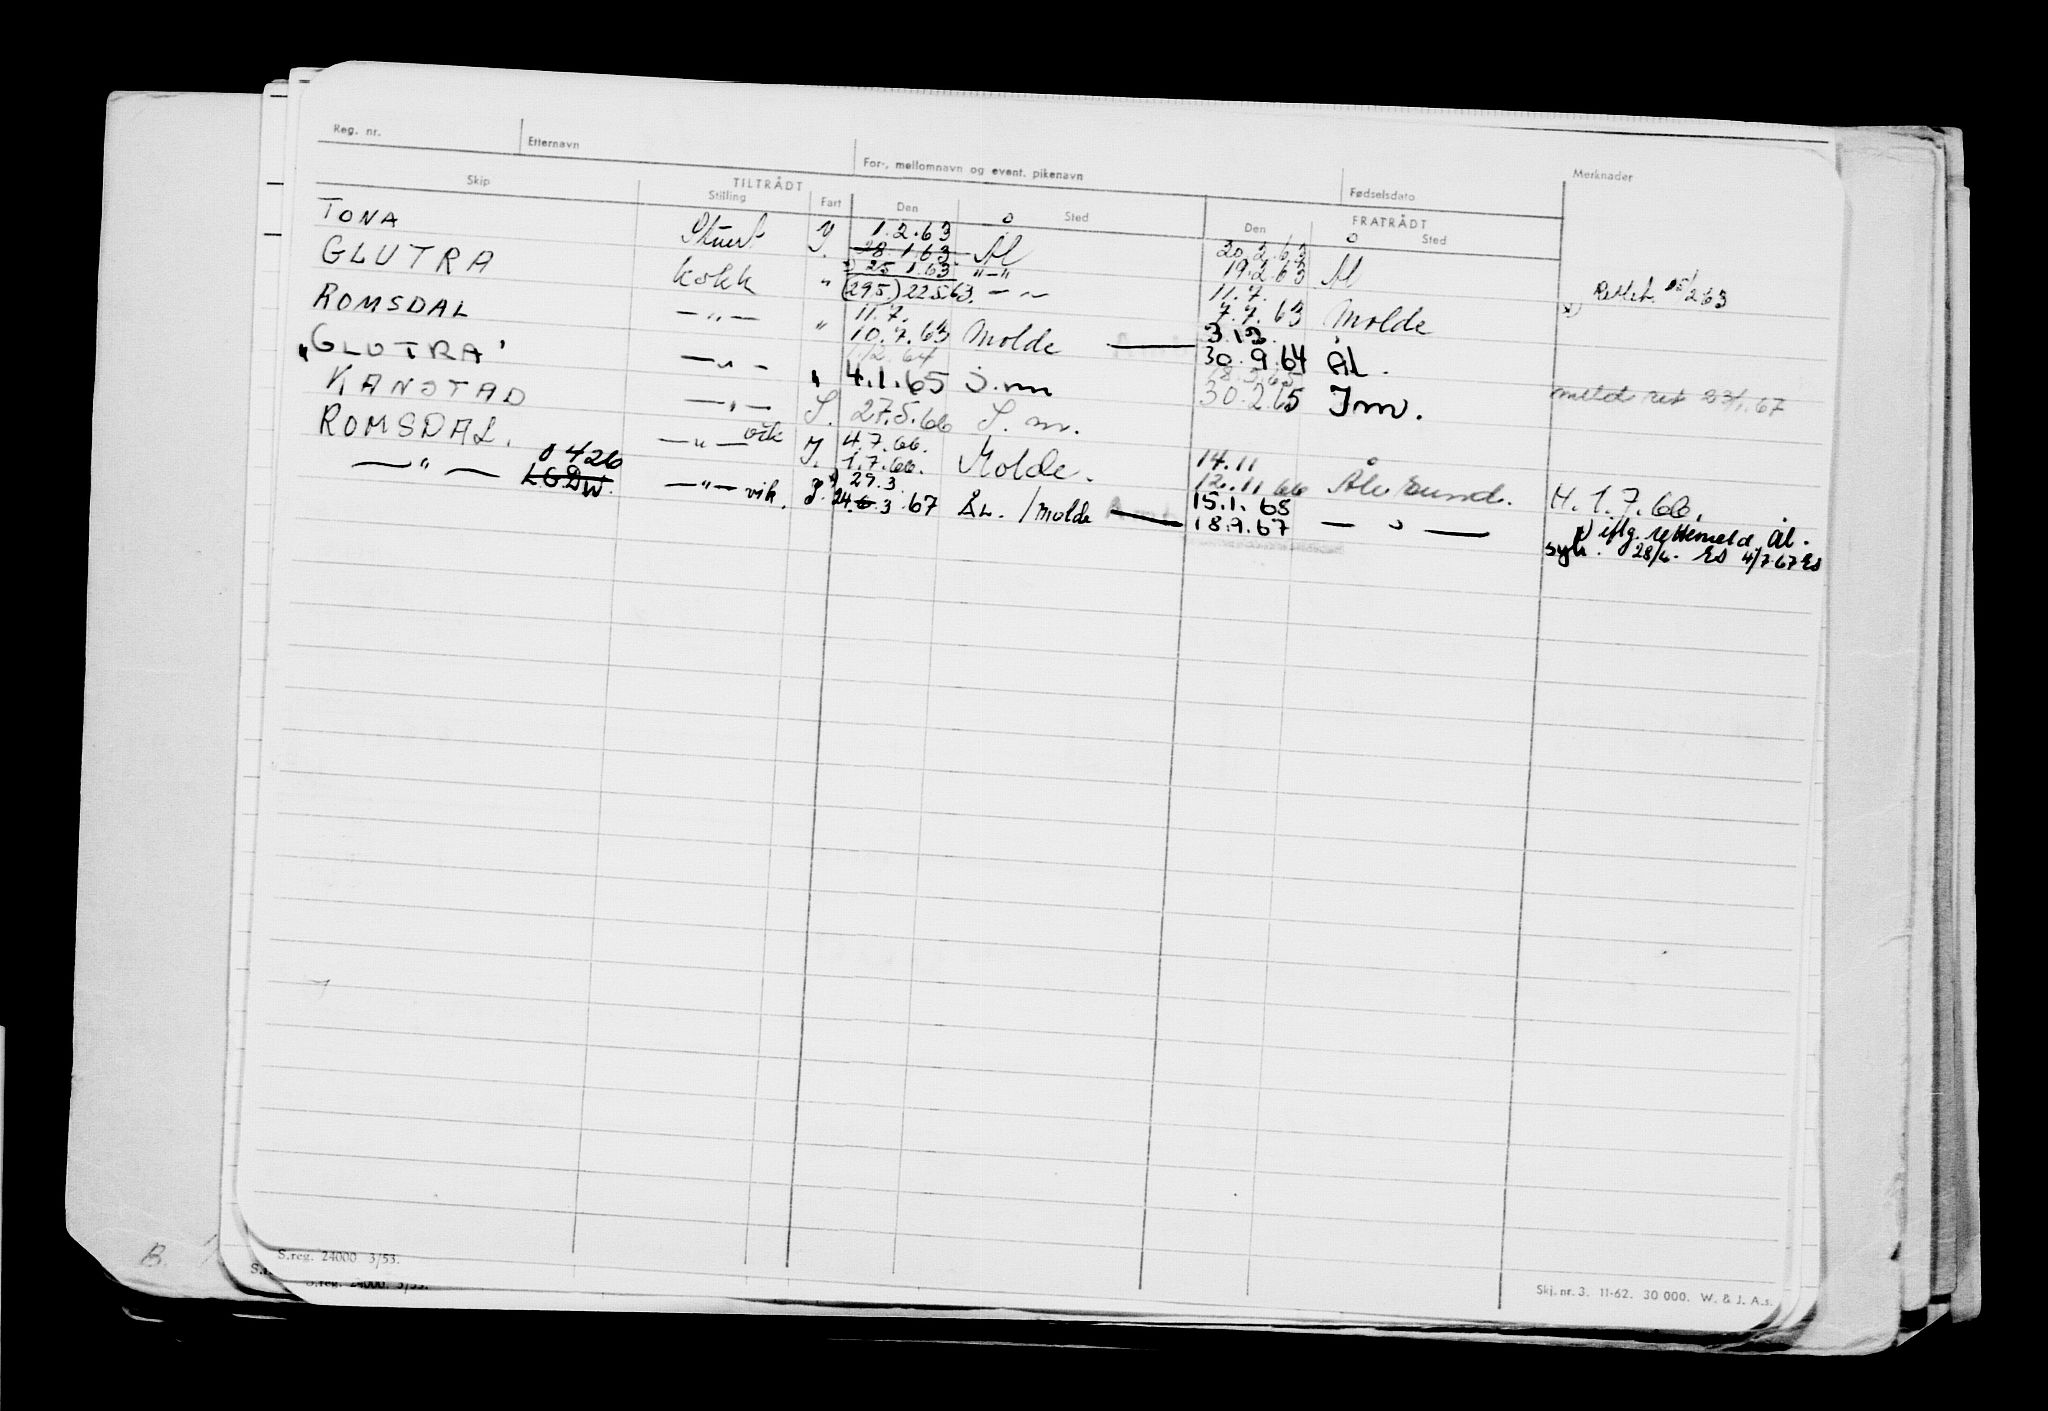 Reg. nr. Etternavn For-, mellomnavn og event. pikenavn Fødselsdato Merknader
TILTRÅDT FRATRÅDT
Skip Stilling Fart Den Sted Den Sted
TONA Stuert 1.2.63 20.2.63
28.1.63 Ål
GLUTRA kokk " 25 1.63 "-" 19.2.63 Ål
(29.5) 22.5.63. — " — 11.7. x) Rettet 15/2 63
ROMSDAL — " — " 11.7. 7.7.63 Molde
10.7.63 Molde — 3.12.
„GLUTRA' — " — 1.12.64 30.9.64 ÅL.
KANSTAD — " — " 4.1.65 S.m 18.5.65
30.2.65 Im. meld ret 23/1.67
ROMSDAL. — " — vik S. 27.5.66 S. m.
4.7.66.
1.7.66. Molde. 14.11
12.11 66 Ålesund. H. 1.7.66.
— " — 0426 LGDW. — " — vik. 29.3.
24.6.3.67 ÅL. / Molde — 15.1.68
18.9.67 — " — x) iflg. rettemeld. Ål.
syk. 28/6. ES 4/7-67 ES
B.
S.reg. 24000 3/53.
S.reg. 24000. 3/53.
Skj. nr. 3. 11-62. 30 000. W. & J. A.s.